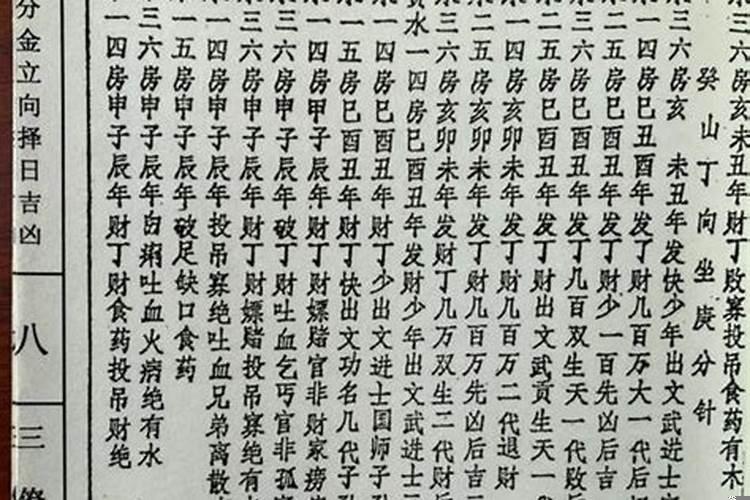 三六房亥未丑年财丁败寡投吊食药有木
癸山丁向坐庚分针
水三六房亥 未丑年发快少年出文武进士
一四房巳丑酉年发了财几百万大一代后
二五房巳酉丑年发丁财少一百先凶后吉
三六房巳酉丑年发丁几百双生天一代败后
二五房巳酉丑年发丁财出文武贡生天一
一四房亥卯未年发丁财几百万二代退财
二五房亥卯未年发丁财几百万先凶后吉
三六房亥卯未年发财丁几万双生二代财
水一四房巳酉丑年发财少年出文武进士
一四房巳酉丑年财丁少出文进士国师子
一五房巳酉丑年财丁快出文功名几代子
一四房甲子辰年财丁财嫖赌官非财家痨
三六房申子辰年破丁财吐血乞丐官非孤
三六房申子辰年财丁财嫖赌投吊寡绝有
一四房申子辰年投吊寡绝吐血兄弟离散
一五房申子辰年破足缺口食药
三六房申子辰年白痢吐血火病绝有水
一四房申子辰年财丁财食药投吊财绝
分金立向择日吉凶
八
三